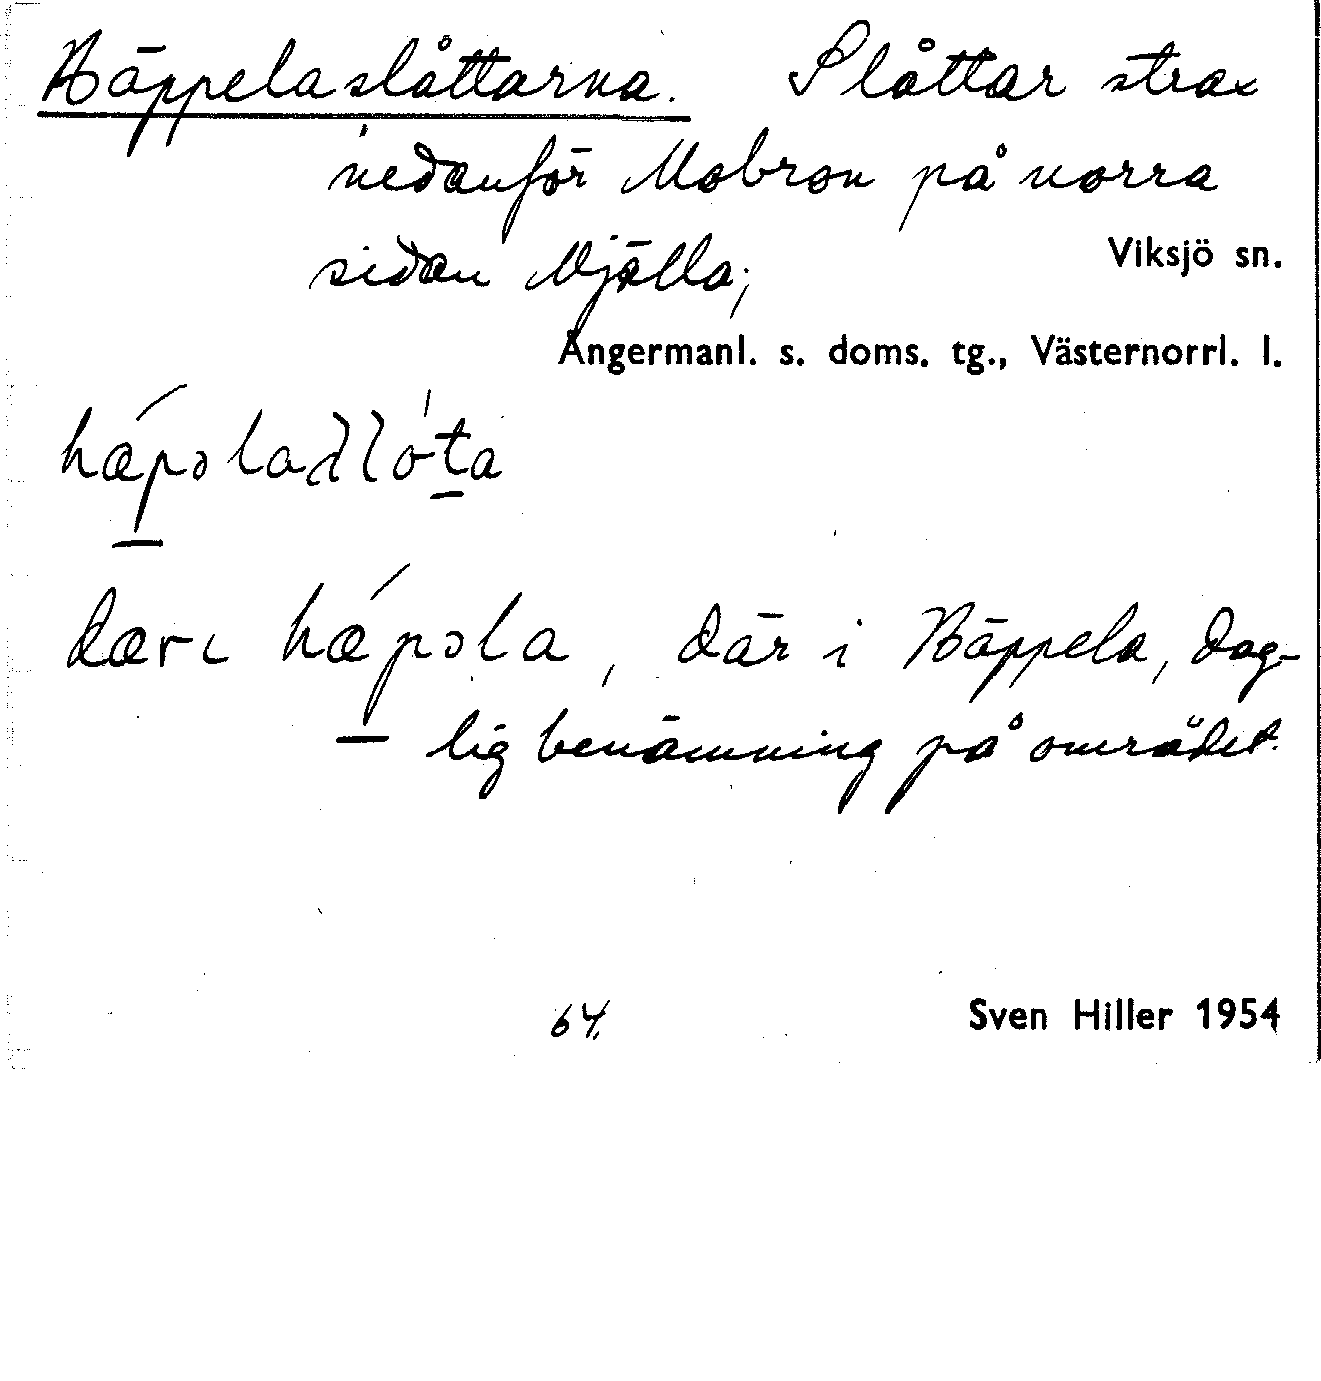 Häppelaslåttarna. Slåttar strax
nedanför Mobron på norra
sidan Mjälla;
Viksjö sn.
Ångermanl. s. doms. tg., Västernorrl. l.
hǽpəla
dærɩ hǽpəla, där i Häppela, dag-
lig benämning på området.
64.
Sven Hiller 1954